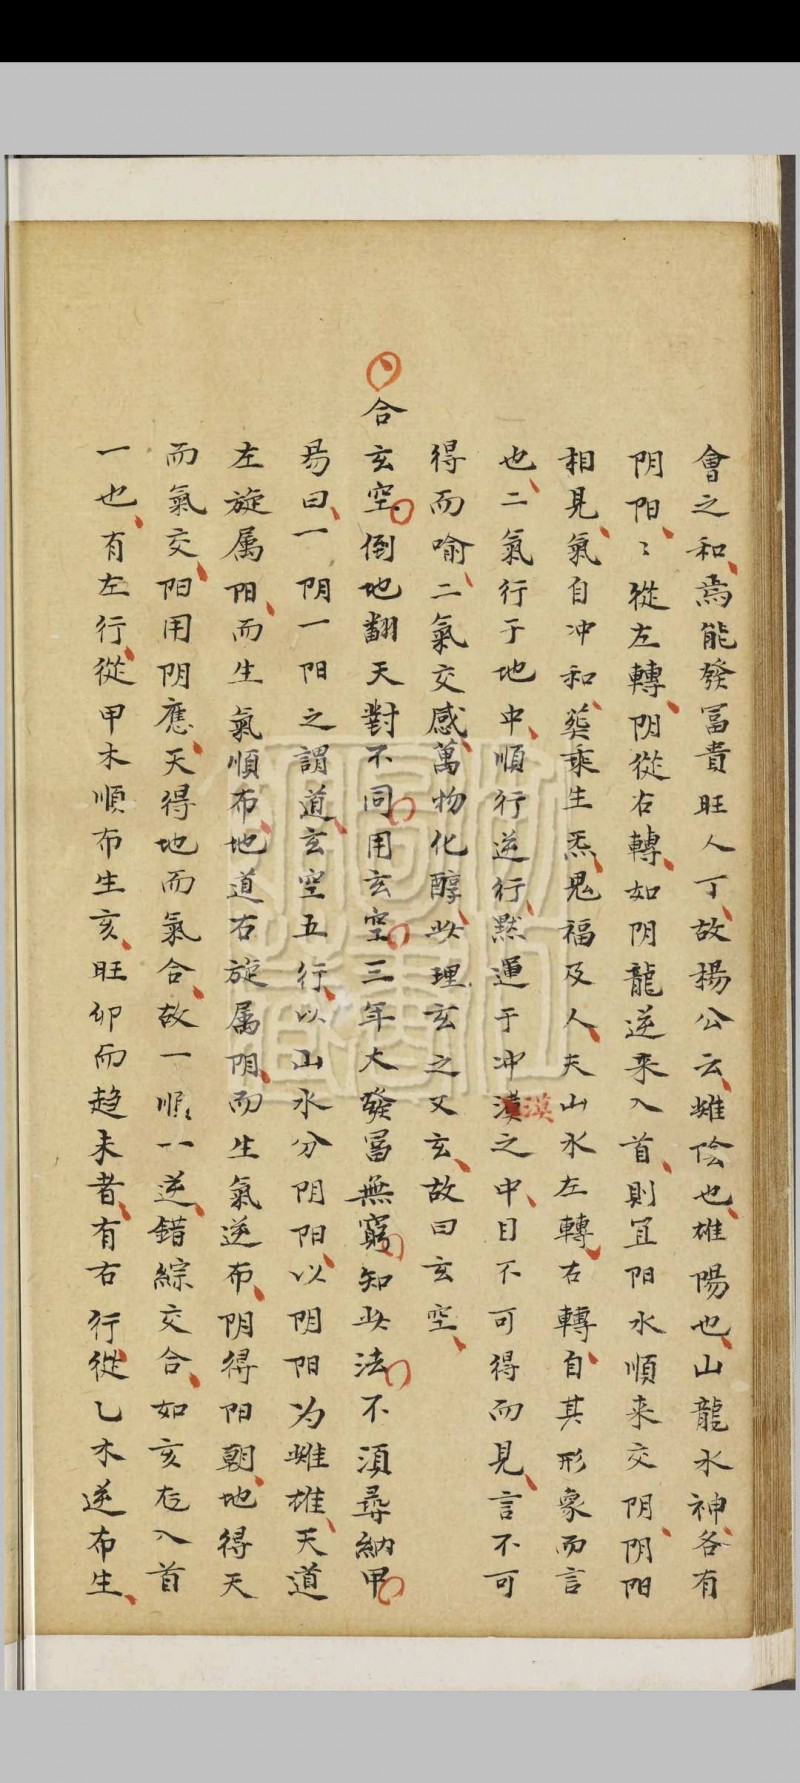 會之和焉能發富貴旺人丁故楊公云雌陰也雄陽也山龍水神各有
阴阳〻從左轉阴從右轉如阴龍逆来入首則宜阳水順来交阴阴阳
相見氣自冲和葵乘生炁鬼福及人夫山水左轉右轉自其形象而言
也二氣行于地中順行逆行默運于冲漠之中目不可得而見言不可
漠
得而喻二氣交感萬物化醇此理玄之又玄故曰玄空
合玄空倒地翻天對不同用玄空三年大發冨無窮知此法不須尋納甲
易曰一阴一阳之謂道玄空五行以山水分阴阳以阴阳为雌雄天道
左旋属阳而生氣順布地道右旋属阴而生氣逆布阴得阳朝地得天
而氣交阳用阴應天得地而氣合故一順一逆錯綜交合如亥龙入首
一也有左行從甲木順布生亥旺卯而趋未者有右行從乙木逆布生